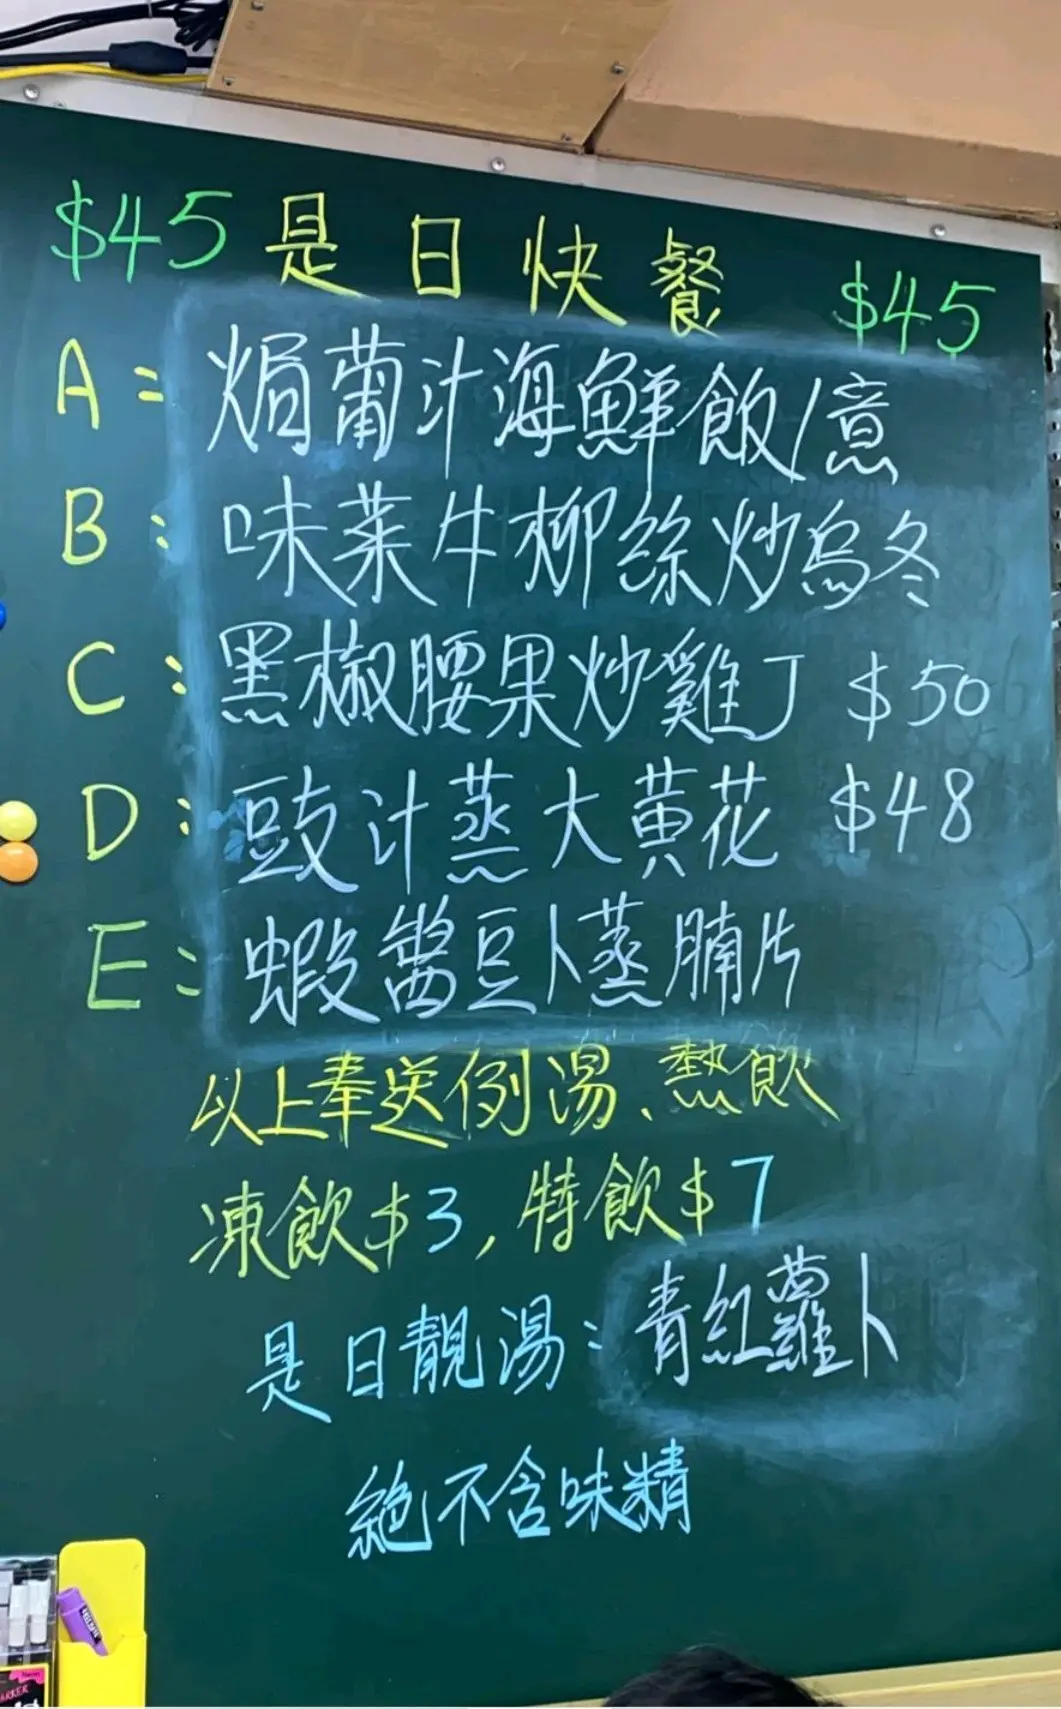 $45 是日快餐 $45
A：焗葡汁海鮮飯/意
B：味菜牛柳絲炒烏冬
C：黑椒腰果炒雞丁 $50
D：豉汁蒸大黃花 $48
E：蝦醬豆卜蒸腩片
以上奉送例湯、熱飲
凍飲$3，特飲$7
是日靚湯：青紅蘿卜
絕不含味精